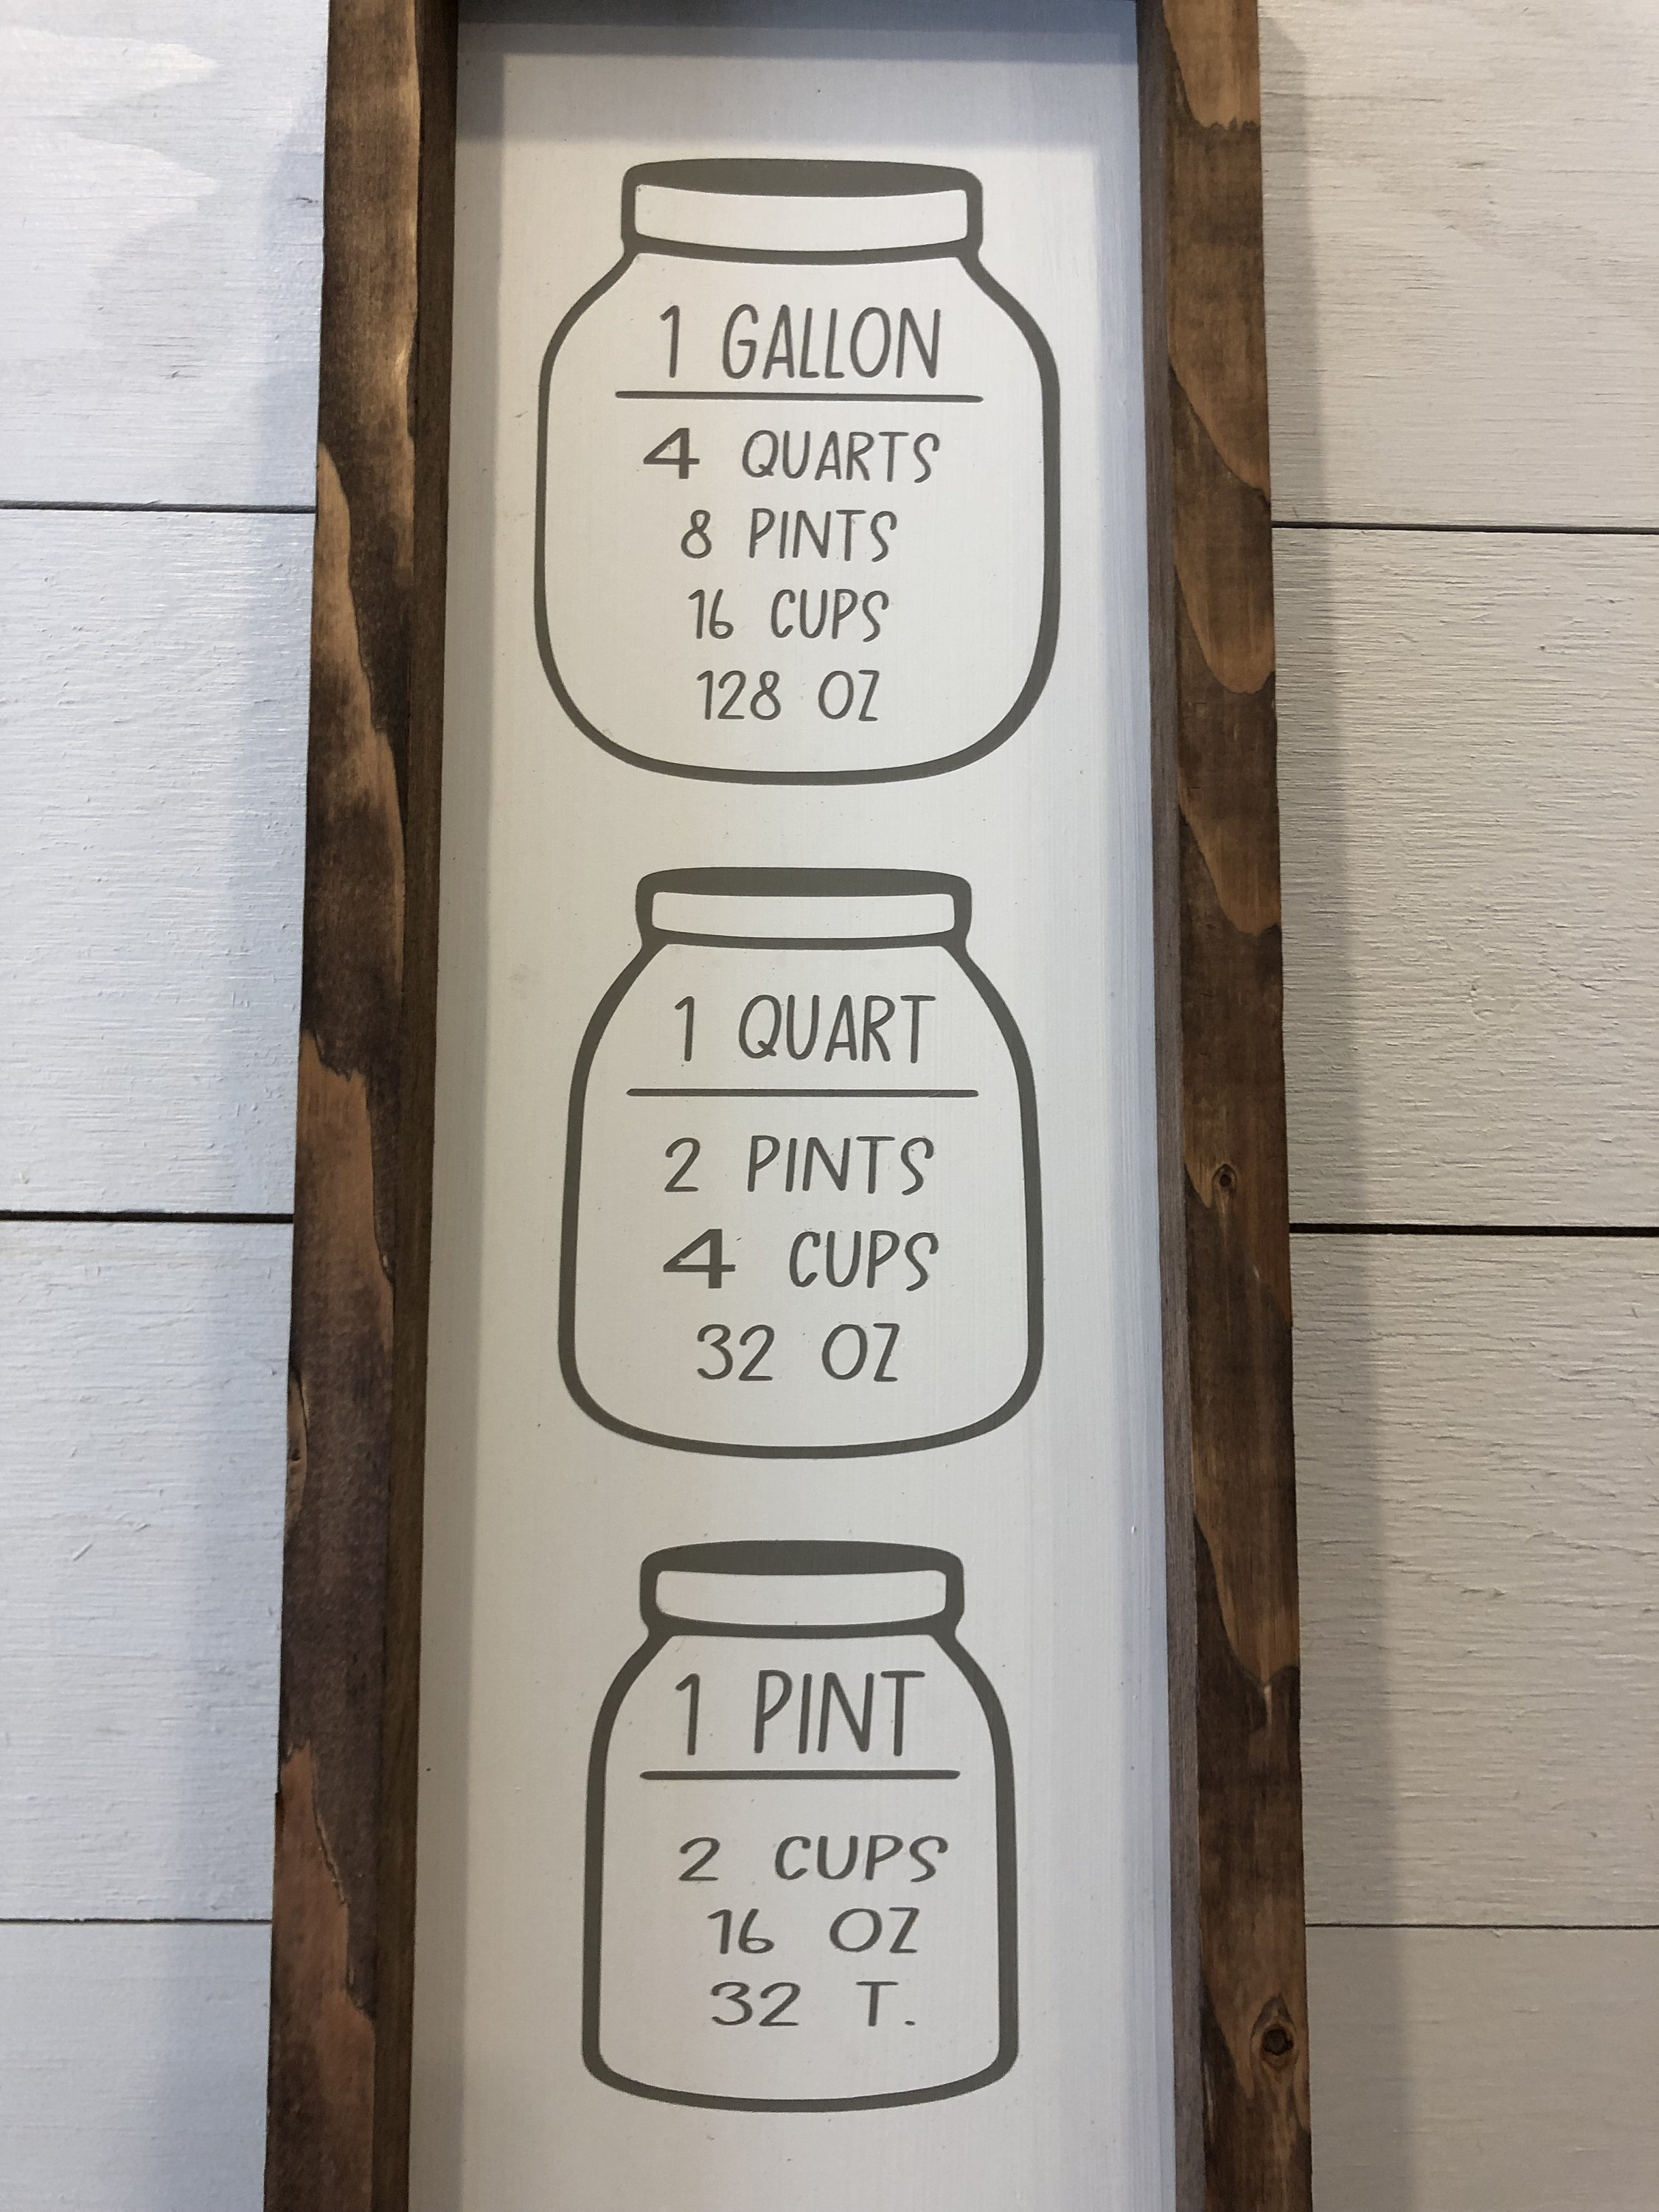 1 GALLON
4 QUARTS
8 PINTS
16 CUPS
128 OZ
1 QUART
2 PINTS
4 CUPS
32 OZ
1 PINT
2 CUPS
16 OZ
32 T.